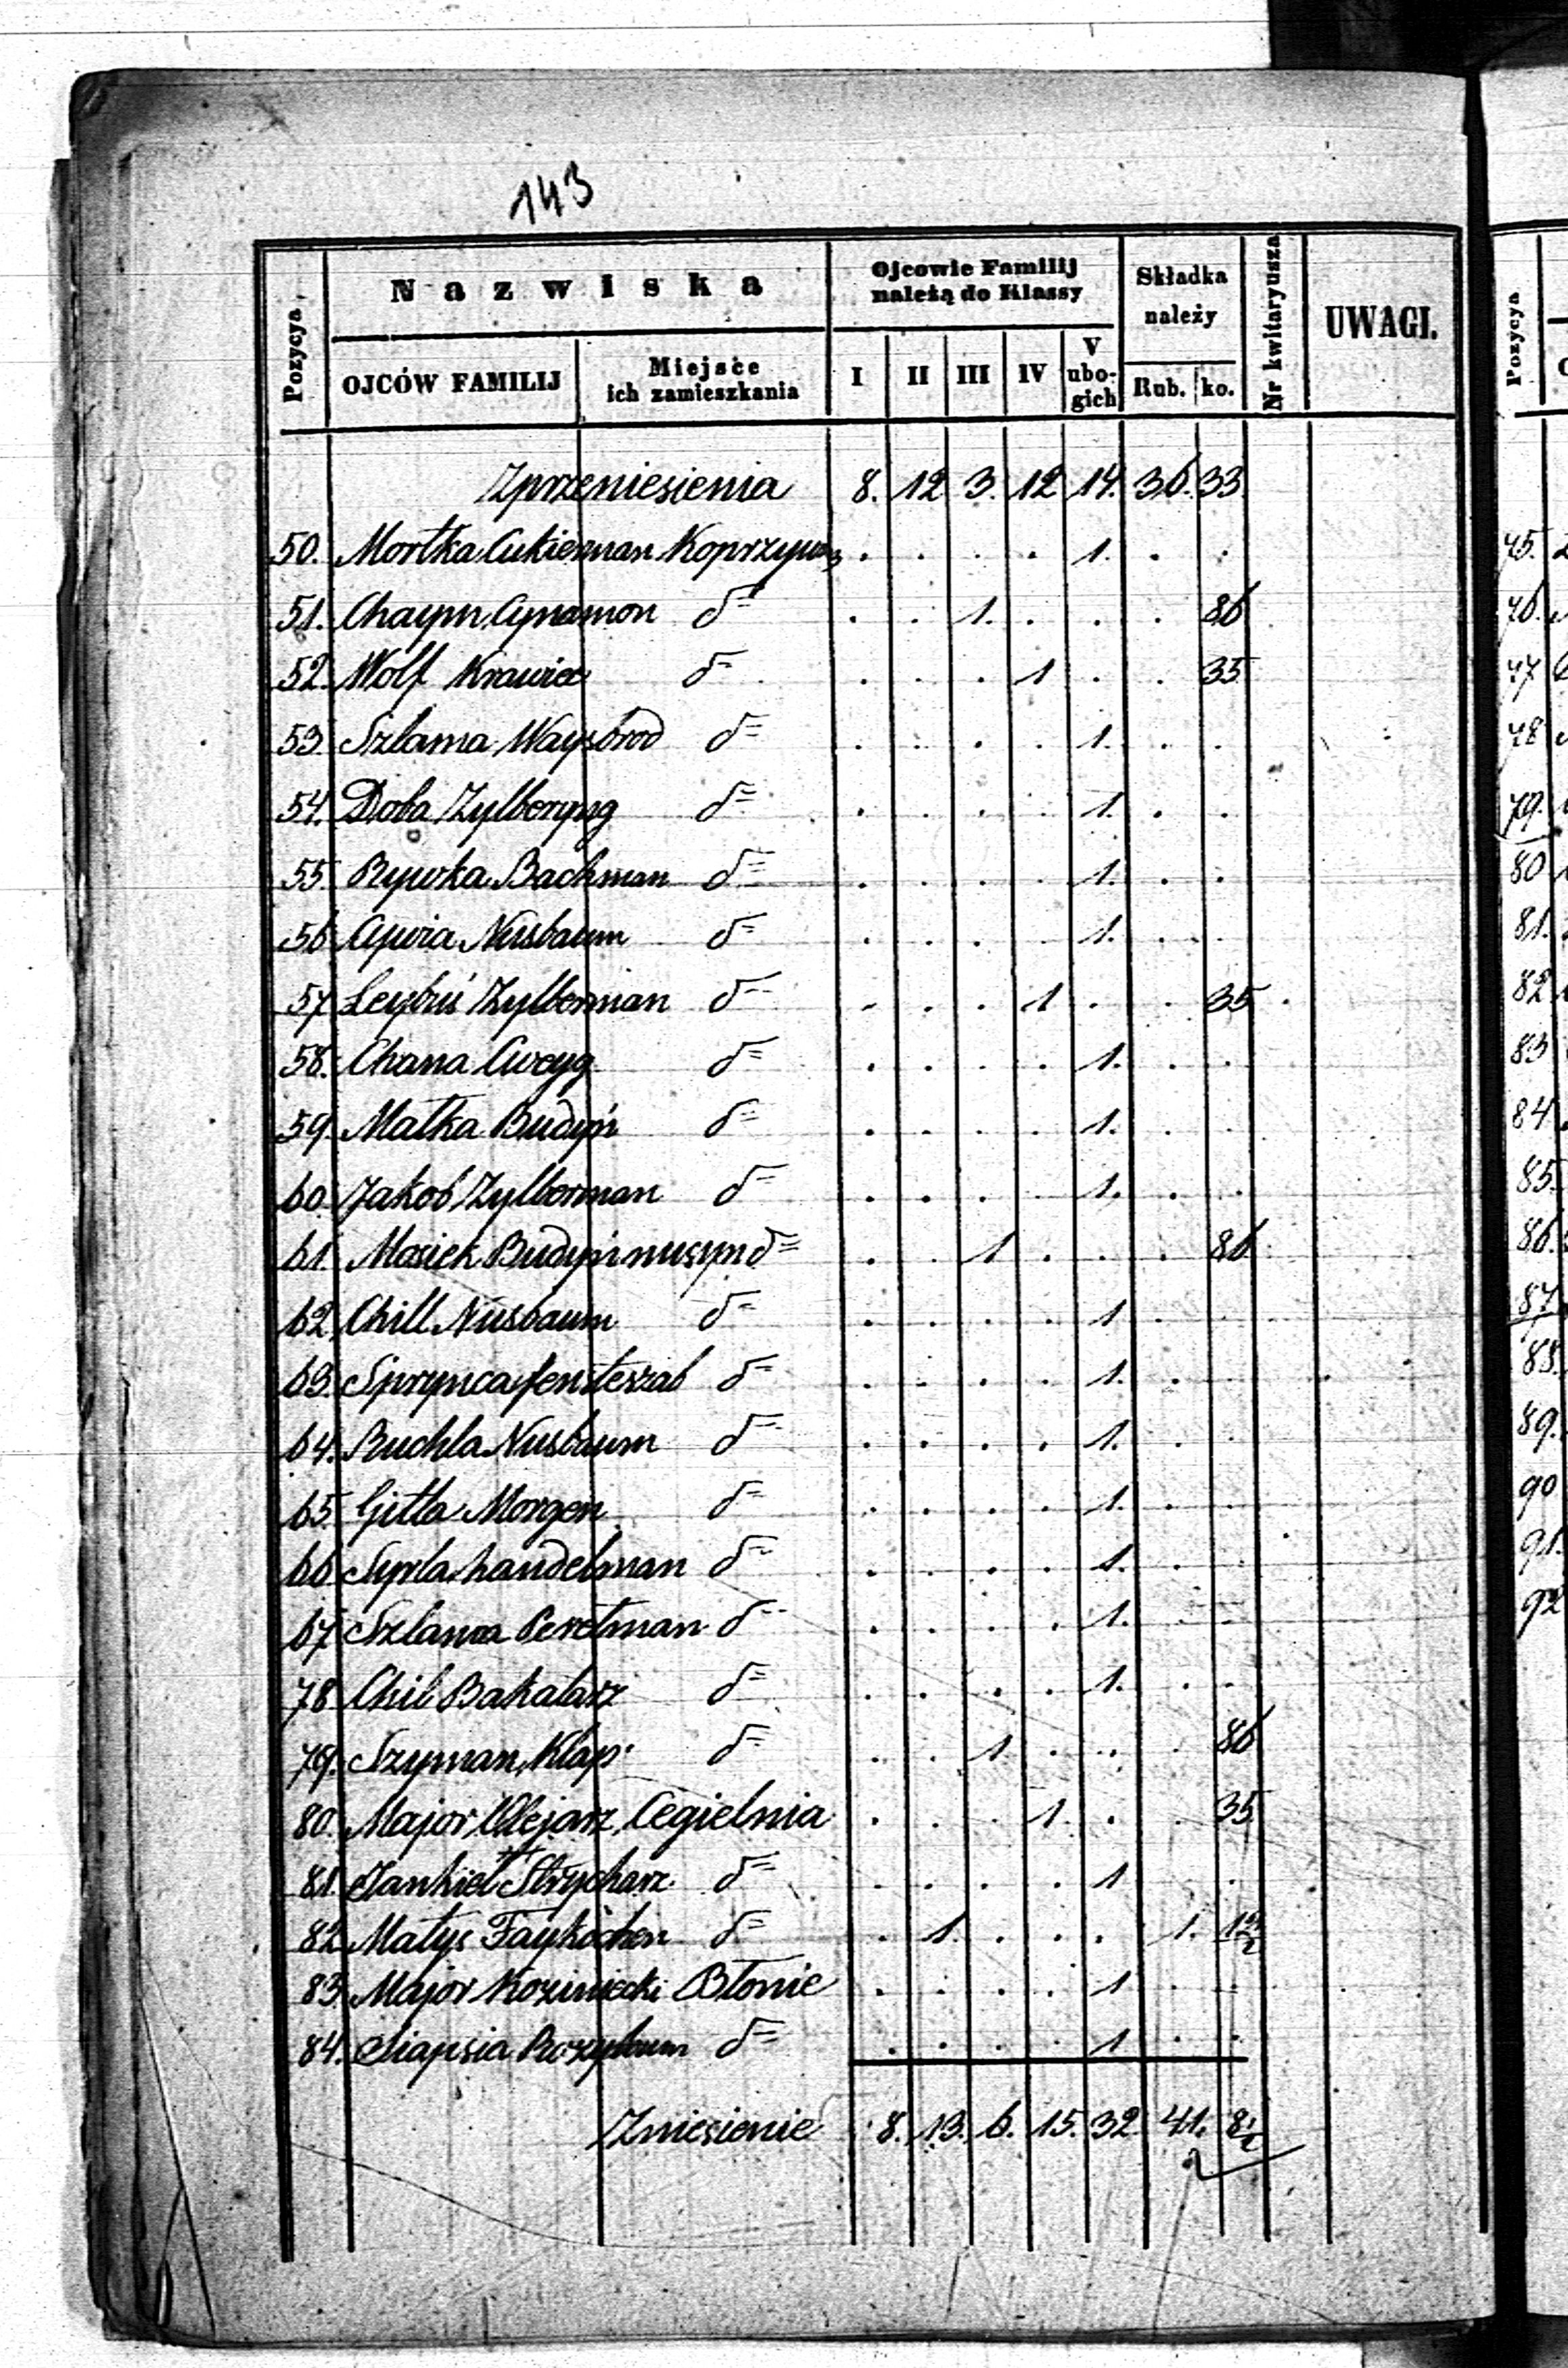 143
Pozycya
Nazwiska
Ojcowie Familij należą do Klassy
Składka należy
Nr kwitaryusza
UWAGI.
OJCÓW FAMILIJ
Miejsce ich zamieszkania
I II III IV V ubogich Rub. ko.
Zprzeniesienia 8. 12 3. 12 14. 36. 33
50. Mortka Cukierman Koprzyw . . . . 1. . .
51. Chaym Cynamon d= . . 1. . . . 86
52. Wolf Krawiec d= . . . 1 . . 35
53. Szlama Waysbrod d= . . . . 1. . .
54. Doba Zylberyng d= . . . . 1. . .
55. Rywka Bachman d= . . . . 1. . .
56 Cywia Nusbaum d= . . . . 1. . .
57 Leybuś Zylberman d= . . . 1 . . 35
58. Chana Cweyg d= . . . . 1. . .
59. Małka Budyń d= . . . . 1. . .
60. Jakob Zylberman d= . . . . 1. . .
61. Mosiek Budyń nusyn d= . . 1 . . . 86
62 Chill Nusbaum d= . . . . 1 . .
63. Sprynca fensterzab d= . . . . 1. . .
64. Ruchla Nusbaum d= . . . . 1. . .
65. Gitla Morgen d= . . . . 1. . .
66 Syrla handelman d= . . . . 1. . .
67. Szlama Perelman d= . . . . 1. . .
78. Chil Bakalarz d= . . . . 1. . .
79. Szyman Klap d= . . 1 . . . 86
80. Major Olejarz Cegielnia . . . 1. . . 35
81. Jankiel Strycharz d= . . . . 1 . .
82 Matys Faykochen d= . 1. . . . 1.
83. Major Koziniecki Błonie . . . . 1 . .
84. d= . . . . 1 . .
Zniesienie 8. 13. 6. 15. 32. 41. 8½
Pozycya
75.
76.
77
78
79.
80
81.
82
83
84
85.
86.
87
88.
89.
90
91.
92